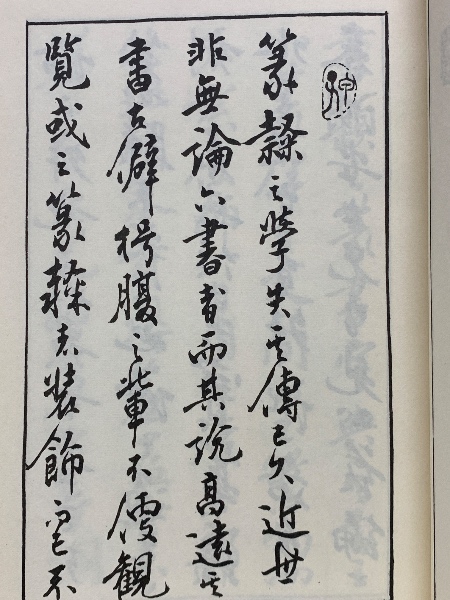 篆隸之學失其傳已久近世
非無論六書者而其說高遠其
書古僻枵腹之輩不便觀
覽或以篆隸為裝飾字不